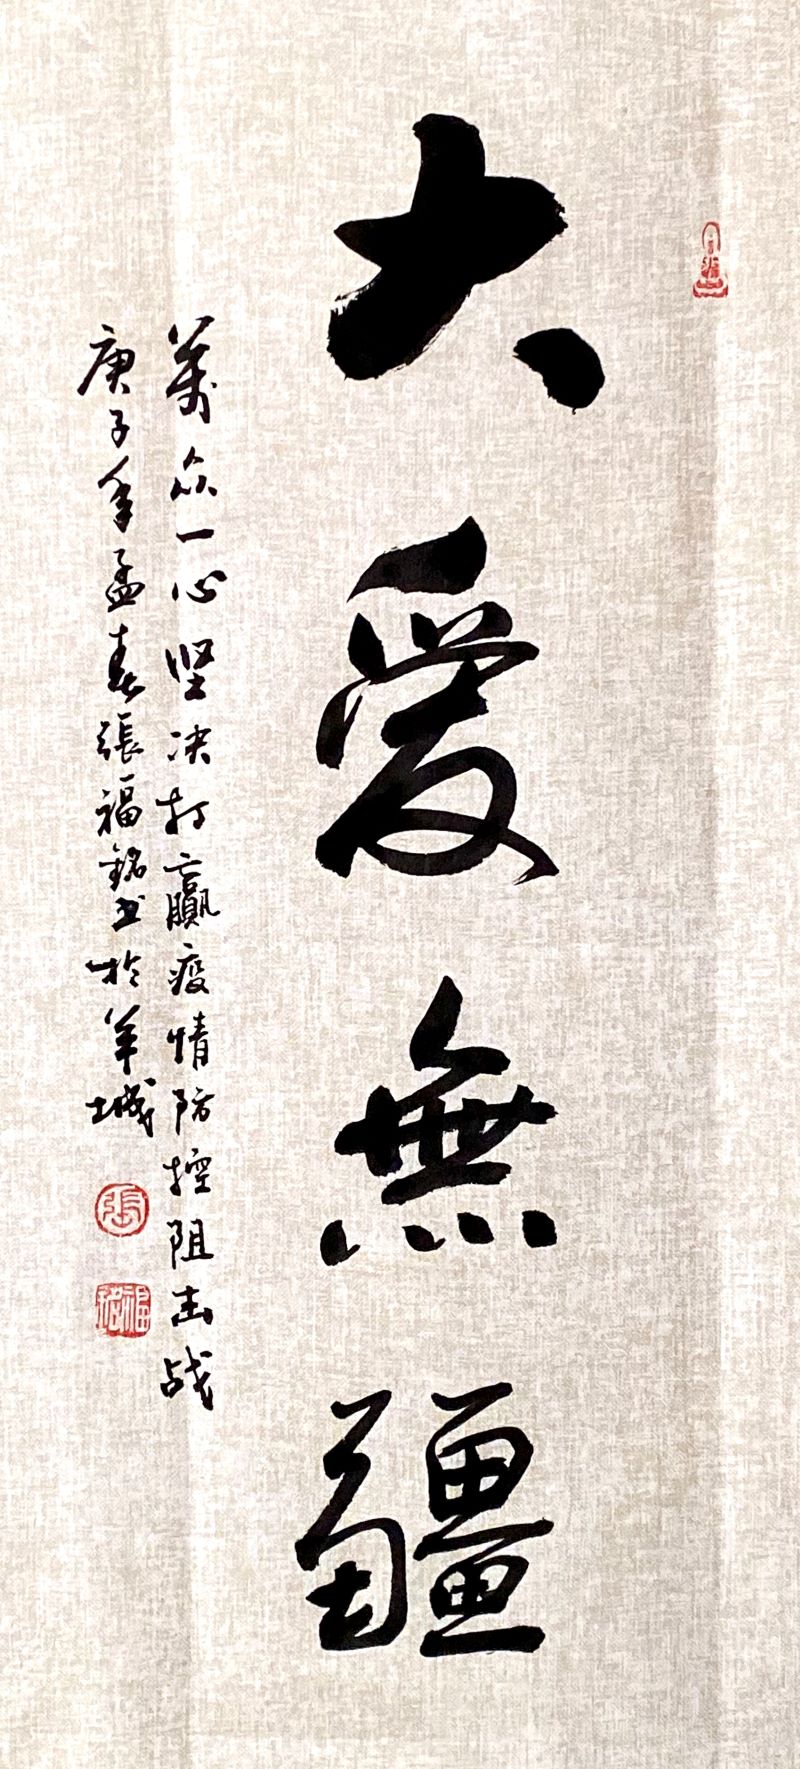 大愛無疆
萬众一心坚决打贏疫情防控阻击战
庚子年孟春張福銘书於羊城
張
福銘